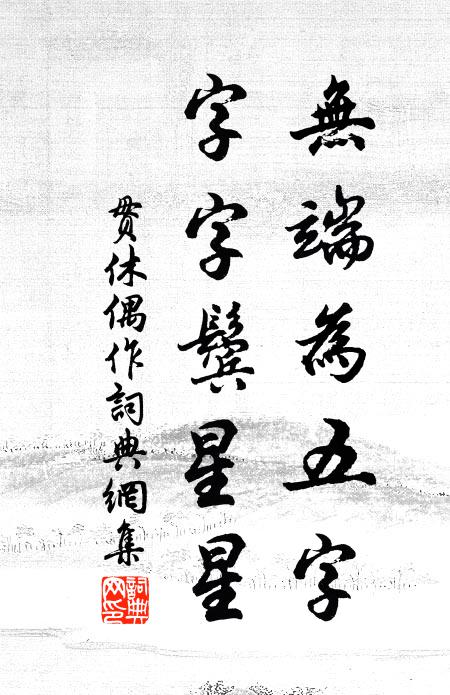 無端為五字
字字鬢星星
貫休偶作詞典網集
詞典